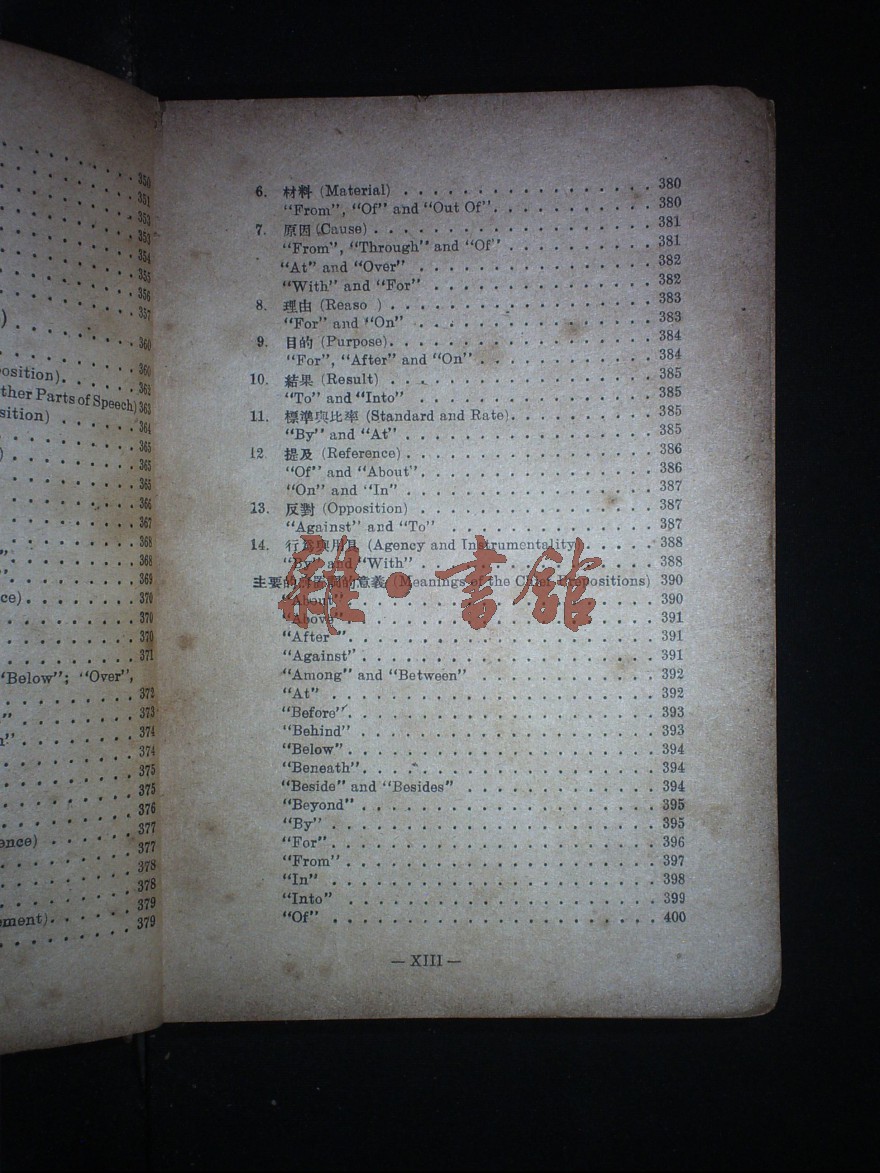 350
351
353
353
354
355
356
357
)
360
360
osition) 362
ther Parts of Speech) 363
sition) 364
365
) 365
365
366
367
368
”. 368
”. 369
ce) 370
370
370
371
“Below”; “Over”,
373
” 373
374
374
375
375
376
377
ence) 377
378
378
379
ement) 379
6. 材料 (Material) 380
“From”, “Of” and “Out Of” 380
7. 原因 (Cause) 381
“From”, “Through” and “Of” 381
“At” and “Over” 382
“With” and “For” 382
8. 理由 (Reaso ) 383
“For” and “On” 383
9. 目的 (Purpose) 384
“For”, “After” and “On” 384
10. 結果 (Result) 385
“To” and “Into” 385
11. 標準與比率 (Standard and Rate) 385
“By” and “At” 385
12 提及 (Reference) 386
“Of” and “About” 386
“On” and “In” 387
13. 反對 (Opposition) 387
“Against” and “To” 387
14. 行爲與用具 (Agency and Instrumentality) 388
“By” and “With” 388
主要的 的意義 (Meanings of the Chief Prepositions) 390
“About” 390
“Above” 391
“After ” 391
“Against” 391
“Among” and “Between” 392
“At” 392
“Before” 393
“Behind” 393
“Below” 394
“Beneath” 394
“Beside” and “Besides” 394
“Beyond” 395
“By” 395
“For” 396
“From” 397
“In” 398
“Into” 399
“Of” 400
— XIII —
雜·書館